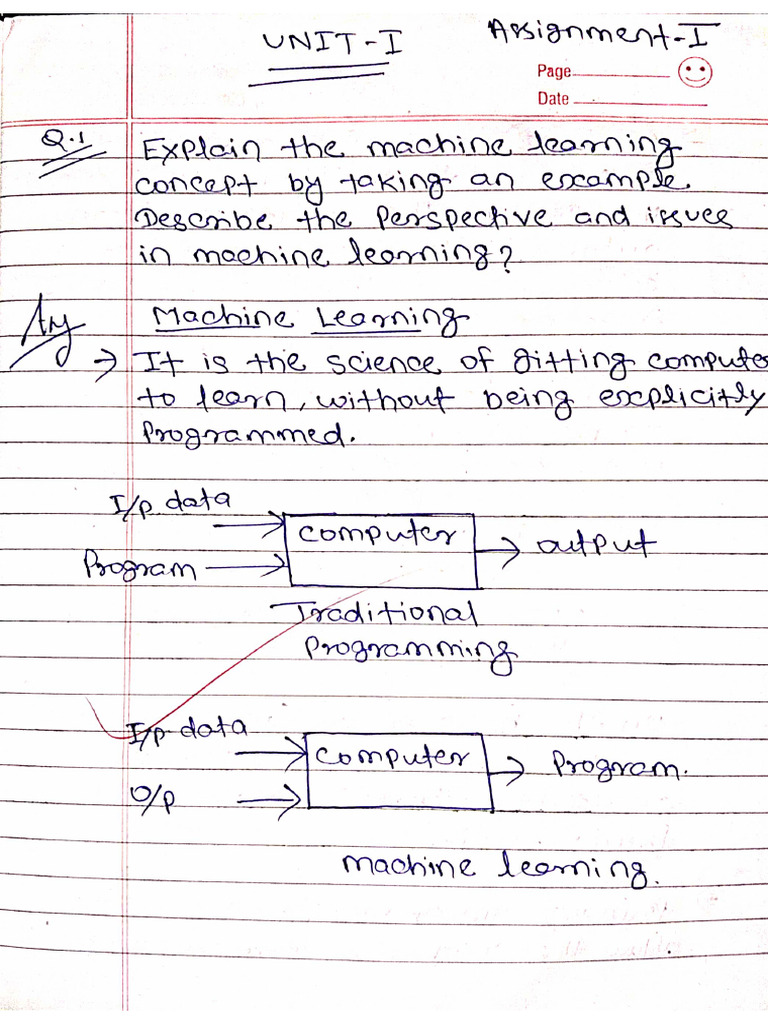 UNIT-I Assignment-I
Page
Date
Q.1 Explain the machine learning
concept by taking an example.
Describe the perspective and issues
in machine learning?
Ans Machine Learning
→ It is the science of gitting computer
to learn, without being explicitly
programmed.
I/p data
computer → output
Program
Traditional
Programming
I/p data
computer → Program.
O/p
machine learning.